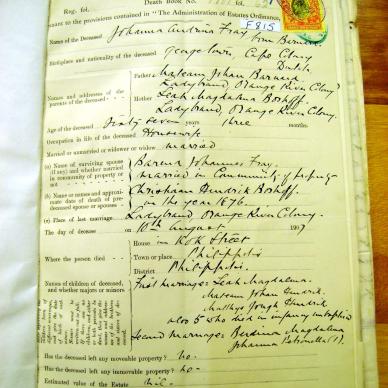 Reg. fol.
Death Book No.
fol.
F815
pursuant to the provisions contained in "The Administration of Estates Ordinance,
Name of the Deceased Johanna Fray
born Barnard
Birthplace and nationality of the deceased George Town, Cape Colony
Dutch
Names and addresses of the parents of the deceased
Father Johan Barnard
Ladybrand, Orange River Colony
Mother Leah Magdalena Boshoff
Ladybrand, Orange River Colony.
Age of the deceased Sixty Seven years three months
Occupation in life of the deceased Housewife
Married or unmarried or widower or widow married
(a) Name of surviving spouse (if any) and whether married in community of property or not Barend Johannes Fray.
married in Community of property
(b) Name or names and approximate date of death of predeceased spouse or spouses Christiaan Hendrik Boshoff
in the year 1876.
(c) Place of last marriage Ladybrand Orange River Colony
The day of decease on 10th August 1907
House in Kok Street
Where the person died Town or place Philippolis
District Philippolis.
Names of children of deceased, and whether majors or minors
First marriage: Leah Magdalena.
Johan Hendrik
Hendrik
also 5 who died in infancy
Second marriage: Magdalena
Johanna Petronella
Has the deceased left any moveable property? no.
Has the deceased left any immoveable property? no.
Estimated value of the Estate nil.